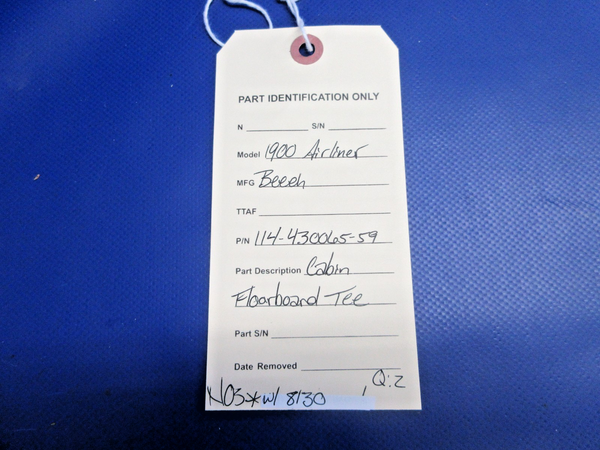 PART IDENTIFICATION ONLY
N ____________ S/N ____________
Model 1900 Airliner
MFG Beech
TTAF ____________
P/N 114-430065-59
Part Description Cabin
Floorboard Tee
Part S/N ____________
Date Removed ____________
Q:2
NOS* w/ 8130